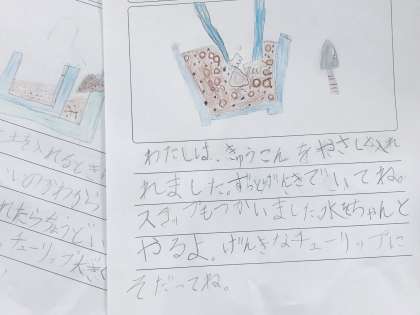 わたしは、きゅうこんをやさしく入れ
れました。ずっとげんきでいてね。
スコップもつかいました。水をちゃんと
やるよ。げんきなチューリップに
そだってね。
土を入れるとき
いのかわから
れたらなうどい
。チューリップ大きく